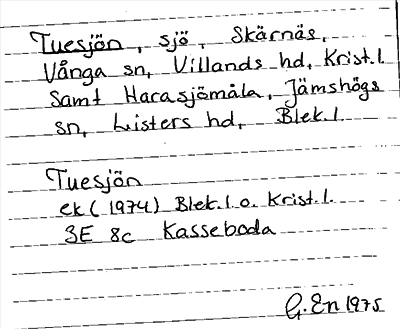 Tuesjön, sjö, Skärnäs,
Vånga sn, Villands hd, Krist.l.
samt Harasjömåla, Jämshögs
sn, Listers hd, Blek.l.
Tuesjön
ek (1974) Blek.l o. Krist.l.
3E 8c Kasseboda
G.En 1975